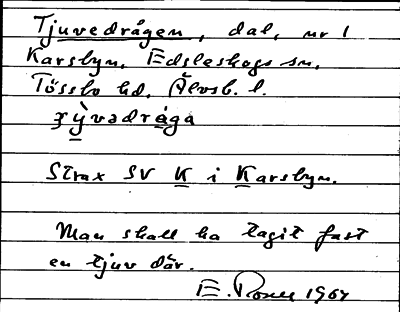 Tjuvedrågen, dal, nr 1
Karsbyn, Edsleskogs sn,
Tössbo hd, Älvsb. l.
ʒỳvədråga
Strax SV K i Karsbyn.
Man skall ha tagit fast
en tjuv där.
E. Rosell 1964